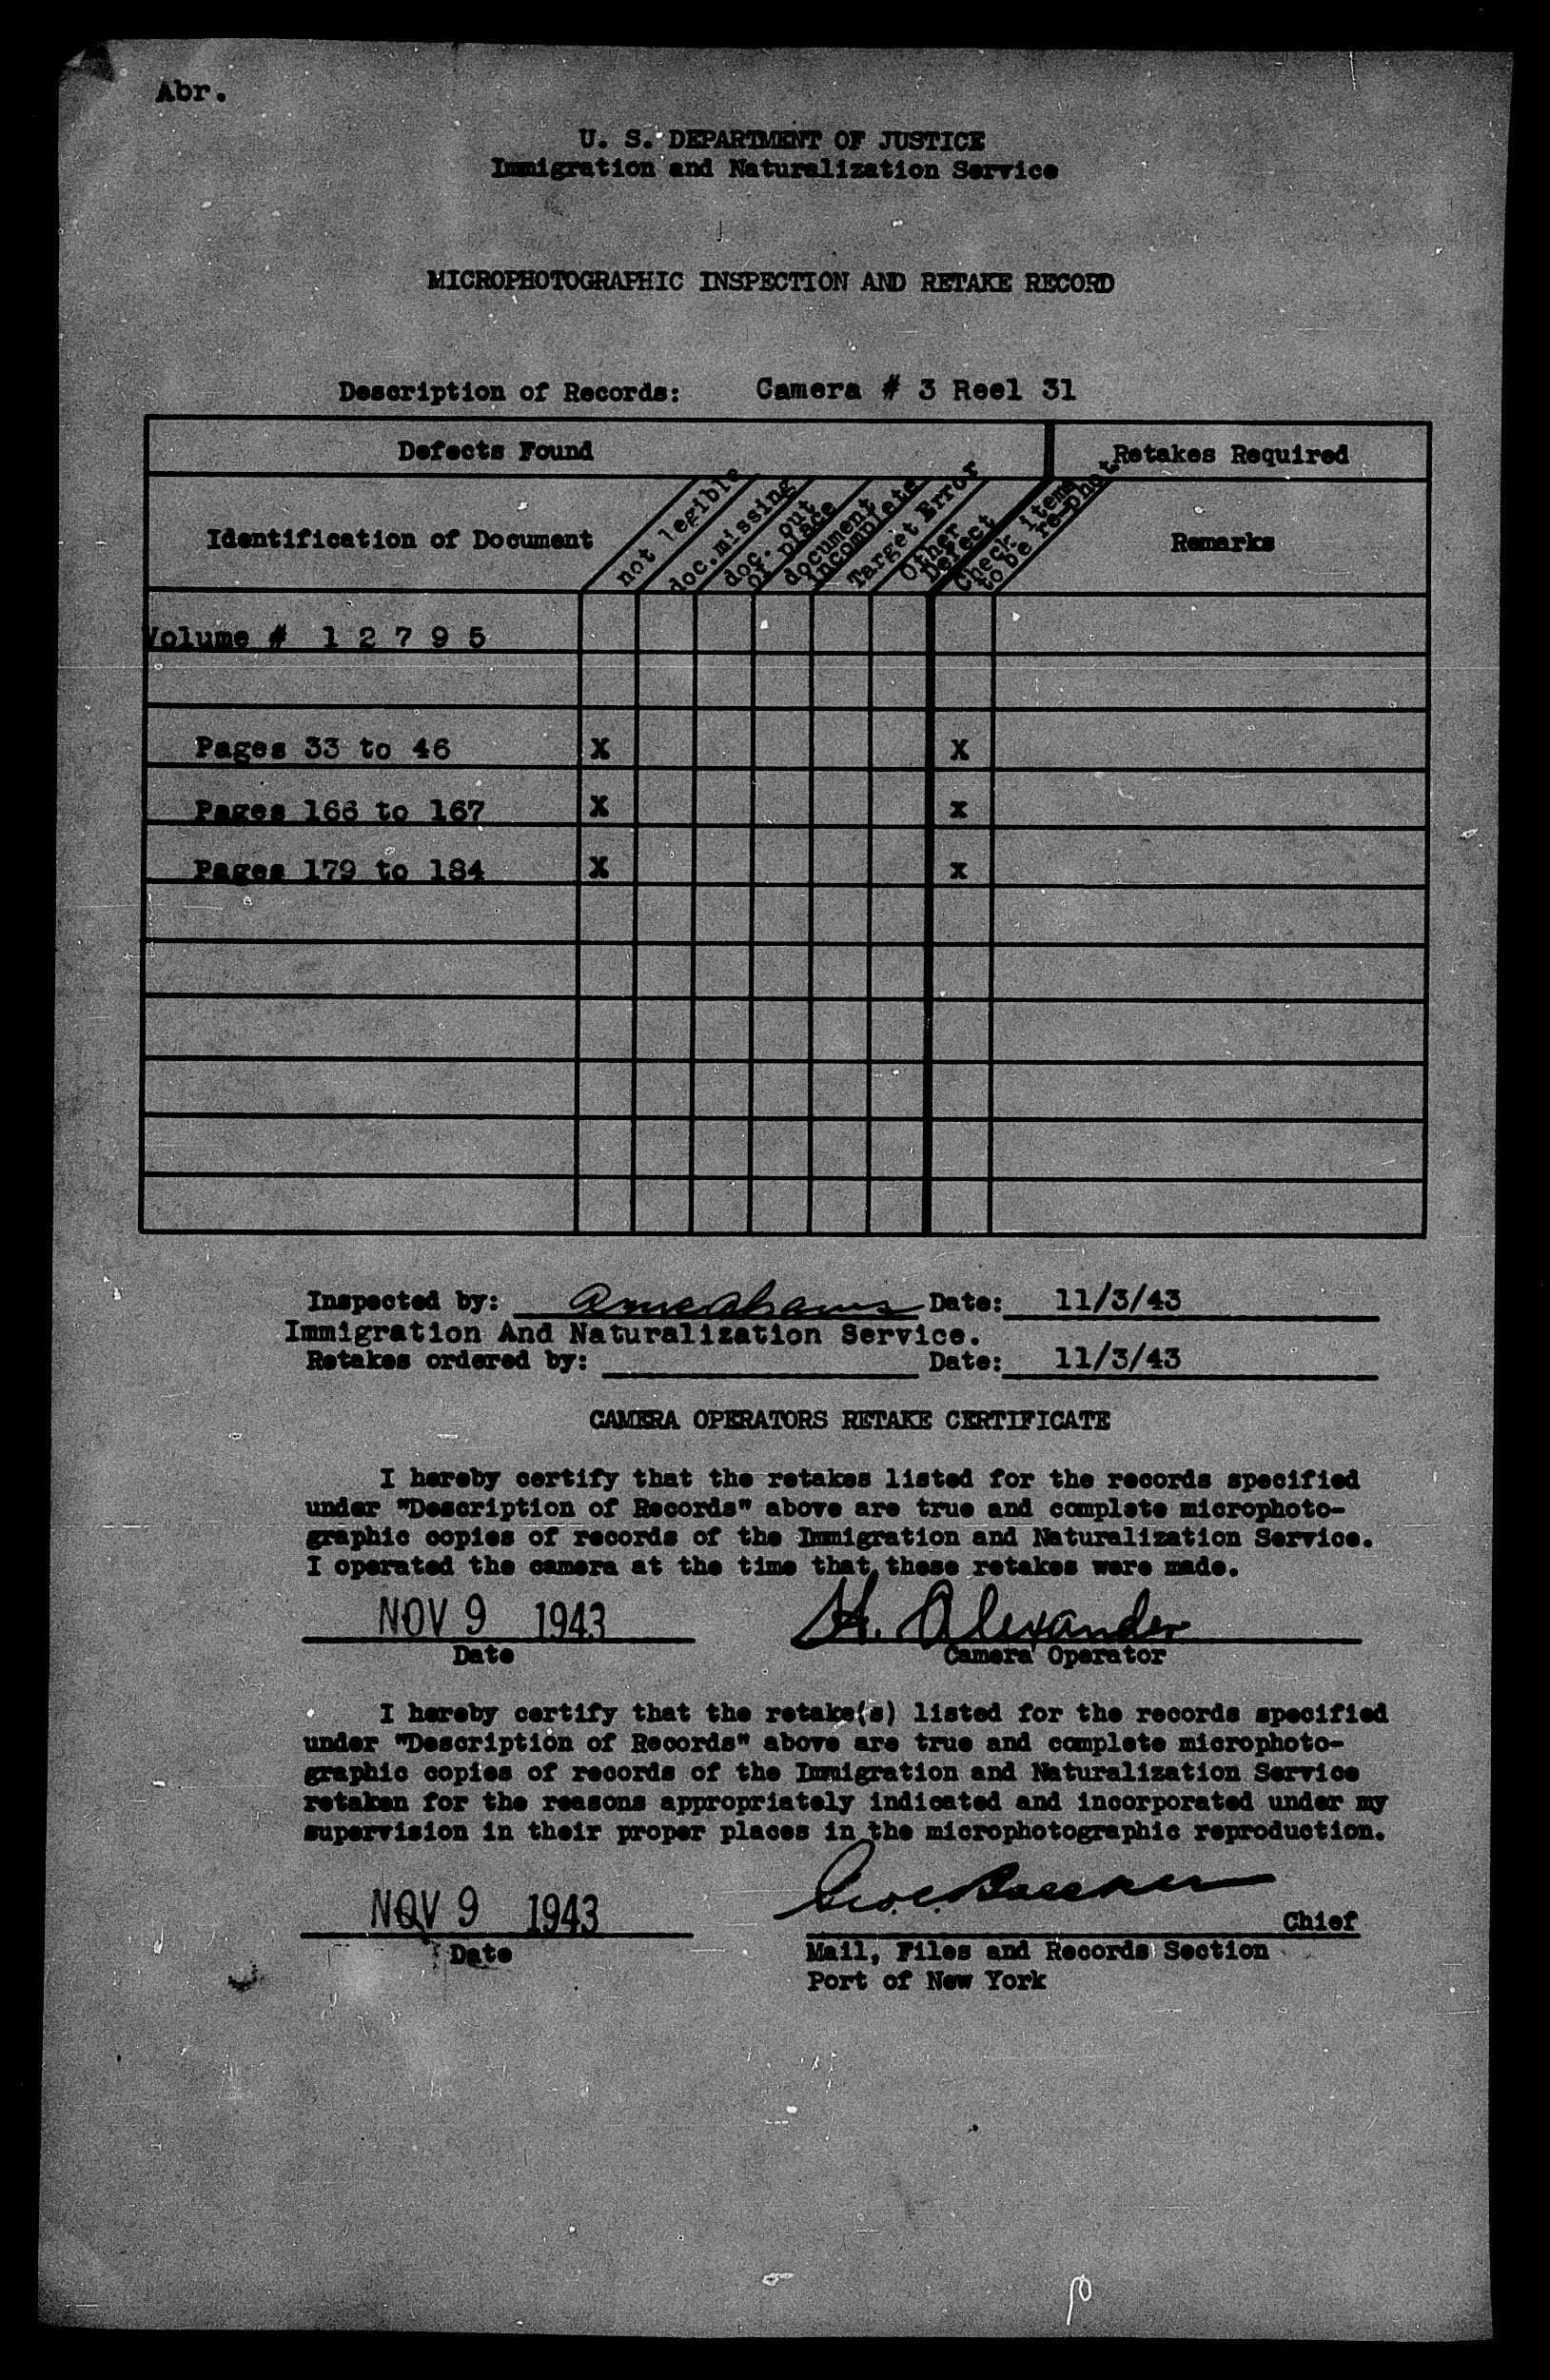 Abr.
U. S. DEPARTMENT OF JUSTICE
Immigration and Naturalization Service
MICROPHOTOGRAPHIC INSPECTION AND RETAKE RECORD
Description of Records: Camera # 3 Reel 31
Defects Found
Retakes Required
Identification of Document
not legible
doc. missing
doc. out
of place
document
incomplete
Target Error
Other
Defect
Check items
to be re-phot
Remarks
Volume # 1 2 7 9 5
Pages 33 to 46 X X
Pages 166 to 167 X X
Pages 179 to 184 X X
Inspected by: Date: 11/3/43
Immigration And Naturalization Service.
Retakes ordered by: Date: 11/3/43
CAMERA OPERATORS RETAKE CERTIFICATE
I hereby certify that the retakes listed for the records specified
under "Description of Records" above are true and complete microphoto-
graphic copies of records of the Immigration and Naturalization Service.
I operated the camera at the time that these retakes were made.
NOV 9 1943 H. Alexander
Date Camera Operator
I hereby certify that the retake(s) listed for the records specified
under "Description of Records" above are true and complete microphoto-
graphic copies of records of the Immigration and Naturalization Service
retaken for the reasons appropriately indicated and incorporated under my
supervision in their proper places in the microphotographic reproduction.
NOV 9 1943
Chief
Date Mail, Files and Records Section
Port of New York